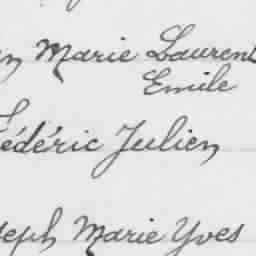 Marie Laurent
Emile
édéric Julien
seph Marie Yves